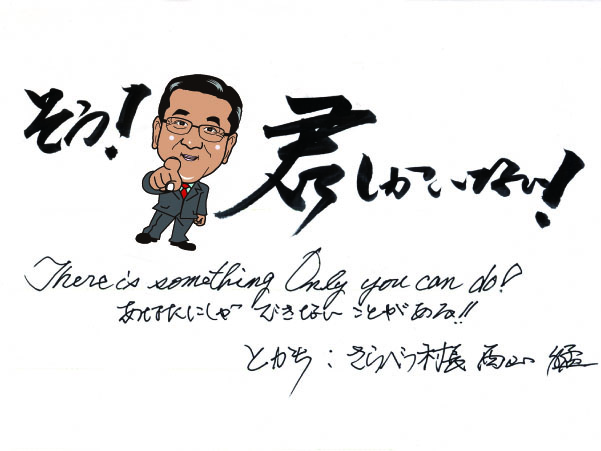 そう! 君しかいない!
There is something Only you can do!
あなたにしか できない ことがある!!
とかち：さらべつ村長 西山 猛